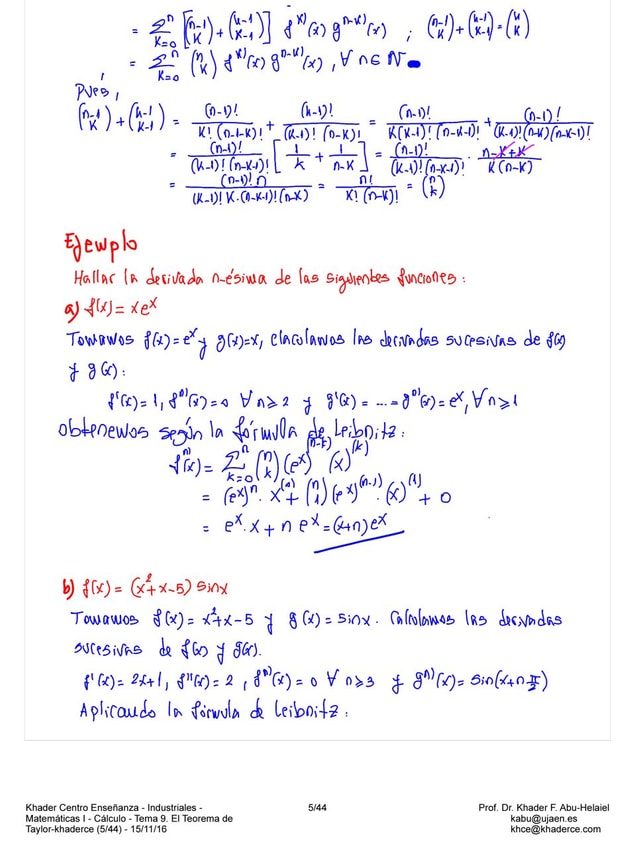 = Σ_{K=0}^{n} [(n-1 K) + (n-1 K-1)] f^{K)}(x) g^{n-K)}(x) ; (n-1 K) + (n-1 K-1) = (n K)
= Σ_{K=0}^{n} (n K) f^{K)}(x) g^{n-K)}(x), ∀ n∈N
Pues,
(n-1 K) + (n-1 K-1) = (n-1)!/(K!(n-1-K)!) + (n-1)!/((K-1)!(n-K)!) = (n-1)!/(K(K-1)!(n-K-1)!) + (n-1)!/((K-1)!(n-K)(n-K-1)!)
= (n-1)!/((K-1)!(n-K-1)!) [1/K + 1/(n-K)] = (n-1)!/((K-1)!(n-K-1)!) · (n-K+K)/(K(n-K))
= (n-1)! n/((K-1)! K·(n-K-1)!(n-K)) = n!/(K!(n-K)!) = (n K)
Ejemplo
Hallar la derivada n-ésima de las siguientes funciones:
a) f(x) = x e^x
Tomamos f(x) = e^x y g(x) = x, clacolamos las derivadas sucesivas de f(x)
y g(x):
f'(x) = 1, f^{n)}(x) = 0 ∀ n ≥ 2 y g'(x) = ... = g^{n)}(x) = e^x, ∀ n ≥ 1
obtenemos según la fórmula de Leibnitz:
f^{n)}(x) = Σ_{k=0}^{n} (n k) (e^x)^{(n-k)} (x)^{(k)}
= (e^x)^n · x^{(0)} + (n 1) (e^x)^{(n-1)} · (x)^{(1)} + 0
= e^x · x + n e^x = (x+n) e^x
b) f(x) = (x²+x-5) sinx
Tomamos f(x) = x²+x-5 y g(x) = sinx. Calculamos las derivadas
sucesivas de f(x) y g(x).
f'(x) = 2x+1, f''(x) = 2, f^{n)}(x) = 0 ∀ n ≥ 3 y g^{n)}(x) = sin(x+n π/2)
Aplicando la fórmula de Leibnitz:
Khader Centro Enseñanza - Industriales -
Matemáticas I - Cálculo - Tema 9. El Teorema de
Taylor-khaderce (5/44) - 15/11/16
5/44
Prof. Dr. Khader F. Abu-Helaiel
kabu@ujaen.es
khce@khaderce.com